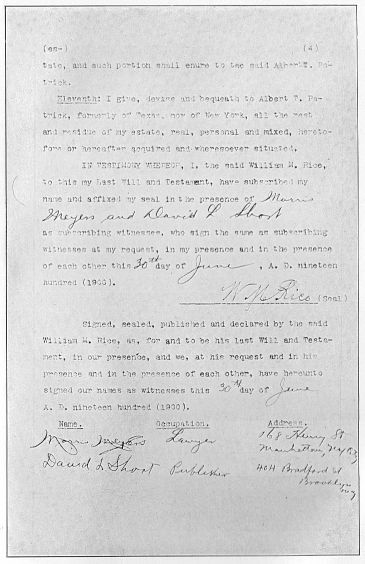 (es-) (4)
tate, and such portion shall enure to the said Albert T. Pa-
trick.
Eleventh: I give, devise and bequeath to Albert T. Pa-
trick, formerly of Texas, now of New York, all the rest
and residue of my estate, real, personal and mixed, hereto-
fore or hereafter acquired and wheresoever situated.
IN TESTIMONY WHEREOF, I, the said William M. Rice,
to this my Last Will and Testament, have subscribed my
name and affixed my seal in the presence of Morris
Meyers and David L Short
as subscribing witnesses, who sign the same as subscribing
witnesses at my request, in my presence and in the presence
of each other this 30th day of June, A. D. nineteen
hundred (1900).
W. M. Rice (Seal)
Signed, sealed, published and declared by the said
William M. Rice, as, for and to be his last Will and Testa-
ment, in our presence, and we, at his request and in his
presence and in the presence of each other, have hereunto
signed our names as witnesses this 30th day of June
A. D. nineteen hundred (1900).
Name. Occupation. Address.
Morris Meyers Lawyer 168 Henry St
Manhattan, NY
David L Short Publisher 404 Bradford St
Brooklyn
NY